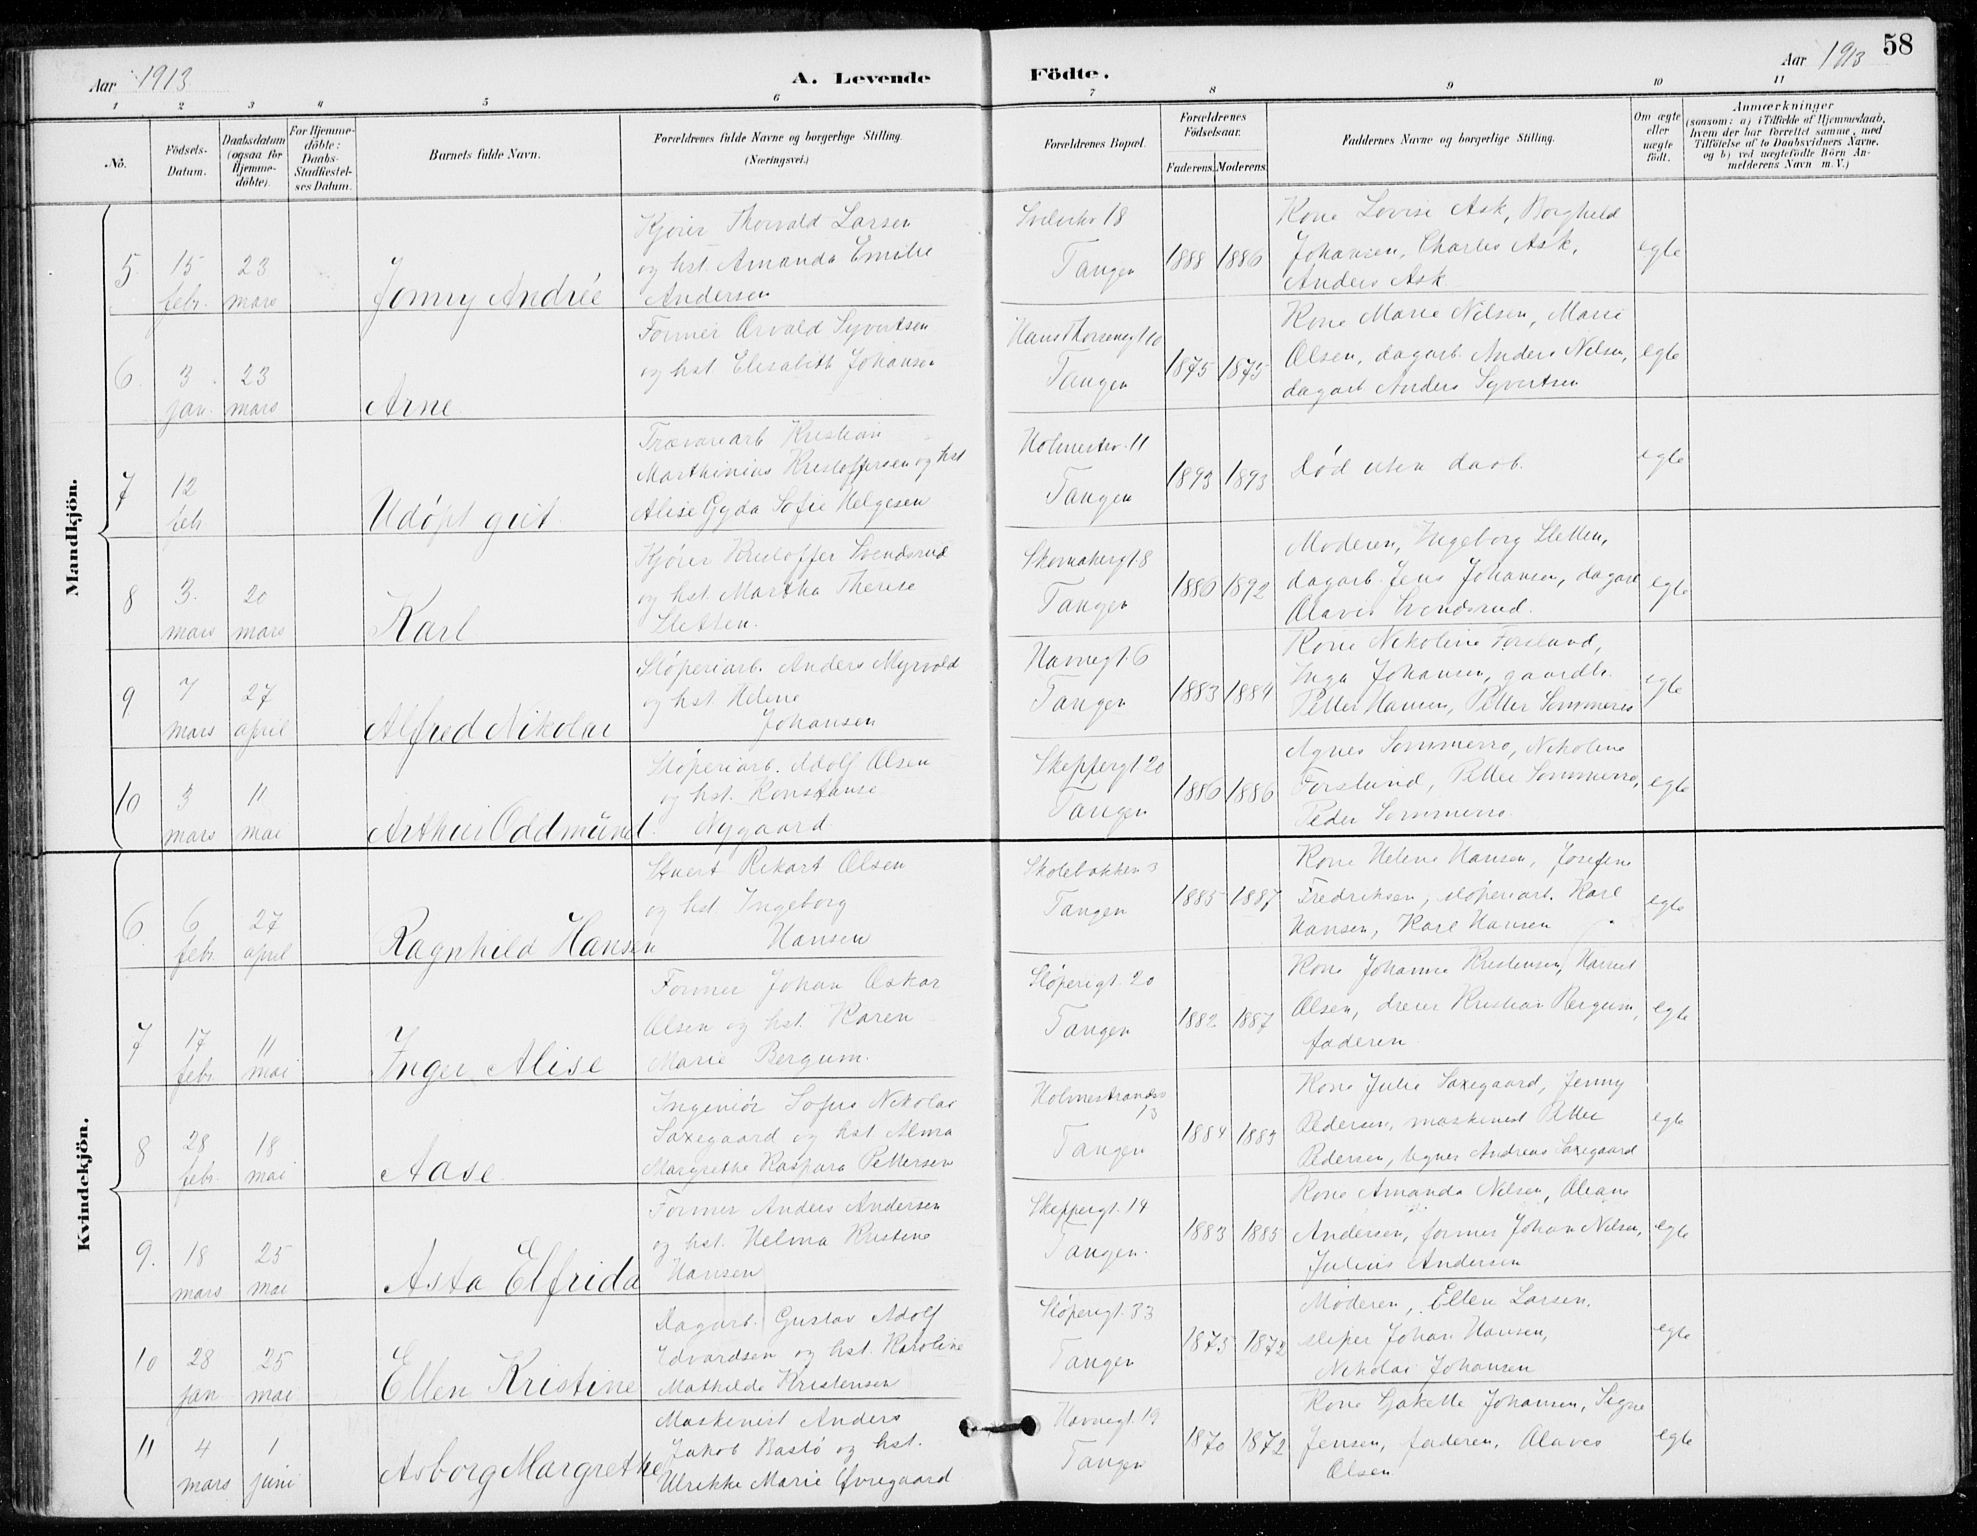 58
Aar 1913
A. Levende
Födte.
Aar 1913
1 2 3 4 5 6 7 8 9 10 11
No.
Födsels-
Datum.
Daabsdatum
(ogsaa for
Hjemme-
döbte).
For Hjemme-
döbte:
Daabs-
Stadfæstel-
ses Datum.
Barnets fulde Navn.
Forældrenes fulde Navne og borgerlige Stilling.
(Næringsvei.)
Forældrenes Bopæl.
Forældrenes
Födselsaar.
Faderens. Moderens.
Faddernes Navne og borgerlige Stilling.
Om ægte
eller
uægte
födt.
Anmærkninger
(saasom: a) i Tilfælde af Hjemmedaab,
hvem der har forrettet samme, med
Tilföielse af to Daabsvidners Navne,
og b) ved uægtefödte Börn An-
melderens Navn m. V.)
Mandkjön.
5
15
febr.
23
mars
Jonny Andrée
Kjører Thorvald Larsen
og hst. Amanda Emilie
Andersen
18
Tangen
1888 1886
Kone Lovise Ask, Borghild
Johansen, Charles Ask,
Anders Ask
egte
6.
3
jan.
23
mars
Arne
Former Orvald Syvertsen
og hst Elisabeth Johansen
Hans Thorsensgt 10
Tangen
1875 1875
Kone Marie Nilsen, Marie
Olsen, dagarb. Anders Nilsen,
dagarb Anders Syvertsen
egte
7
12
feb
Udøpt gut
Trævarearb Kristian
Marthinius Kristoffersen og hst
Alise Gyda Sofie Helgesen
Holmestr. 11
Tangen
1893 1893
Død uten daab.
egte
8
3.
mars
20
mars
Karl
Kjører Kristoffer Svendsrud
og hst. Martha Therese
Sletten.
Skomakergt. 8
Tangen
1886 1892
Moderen, Ingeborg Sletten,
dagarb. Jens Johansen, dagarb
Olavis Svendsrud.
egte
9.
7
mars
27
april
Alfred Nikolai
Støperiarb. Anders Myrvold
og hst. Helene
Johansen
Havnegt. 6
Tangen
1883 1884
Kone Nikoline Forslund,
Inga Johansen, gaardb.
Petter Hansen, Petter Sommerro
egte
10
3
mars
11
mai
Arthur Oddmund.
Støperiarb. Adolf Olsen
og hst. Konstanse
Nygaard
Skippergt. 20
Tangen
1886 1886
Agnes Sommerro, Nikoline
Forslund, Petter Sommerro,
Peder Sommerro.
egte
Kvindekjön.
6.
6
febr.
27
april
Ragnhild Hansen
Stuert Rikart Olsen
og hst. Ingeborg
Hansen
Skolebakken 3
Tangen
1885 1887
Kone Helene Hansen, Josefine
Fredriksen, støperiarb. Karl
Hansen, Karl Hansen
egte
7
17
febr.
11
mai
Inger Alise
Former Johan Oskar
Olsen og hst. Karen
Marie Bergum.
Støperigt. 20
Tangen
1882 1887
Kone Johanne Kristensen, Harriet
Olsen, dreier Kristian Bergum,
faderen
egte
8
28
febr.
18
mai
Aase.
Ingeniør Sofus Nikolai
Saxegaard og hst. Alma
Margrethe Kaspara Pettersen
Holmestrandsv
13
Tangen
1884 1883
Kone Julie Saxegaard, Jenny
Pedersen, maskinist Petter
Pedersen, tegner Andreas Saxegaard
egte
9.
18
mars
25
mai
Asta Elfrida
Former Anders Andersen
og hst. Helma Kristine
Hansen
Skippergt. 14
Tangen.
1883 1885
Kone Amanda Nilsen, Oliane
Andersen, former Johan Nilsen,
Julius Andersen
egte
10
28
jan
25
mai
Ellen Kristine
Dagarb. Gustav Adolf
Edvardsen og hst. Karoline
Mathilde Kristensen
Støperigt. 33
Tangen
1875 1872
Moderen, Ellen Larsen,
sliper Johan Hansen,
Nikolai Johansen
egte
11
4
mars
1
juni
Asborg Margrethe
Maskinist Anders
Jakob Bastø og hst.
Ulrikke Marie Øvregaard
Havnegt. 19
Tangen
1870 1872
Kone Johansen, Signe
Jensen, faderen, Olaves
Olsen
egte